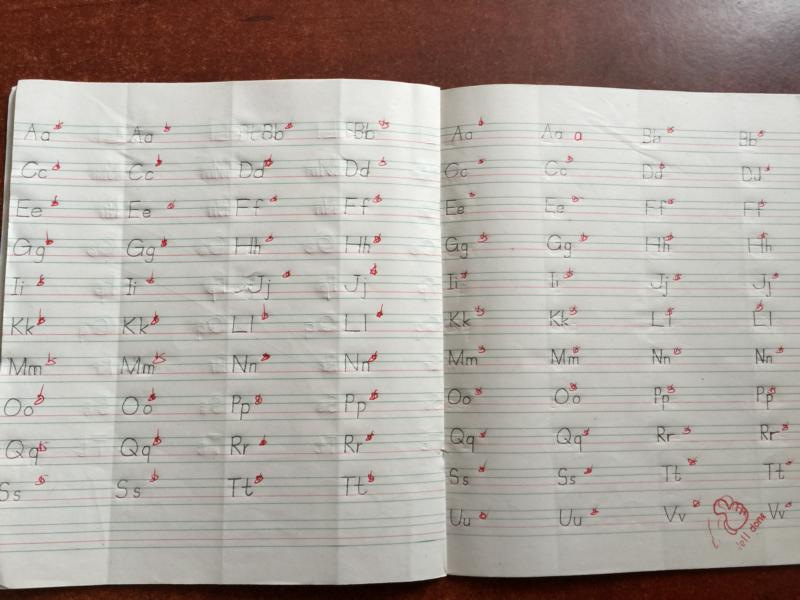 Aa Aa Bb Bb
Cc Cc Dd Dd
Ee Ee Ff Ff
Gg Gg Hh Hh
Ii Ii Jj Jj
Kk Kk Ll Ll
Mm Mm Nn Nn
Oo Oo Pp Pp
Qq Qq Rr Rr
Ss Ss Tt Tt
Aa Aa a Bb Bb
Cc Cc Dd Dd
Ee Ee Ff Ff
Gg Gg Hh Hh
Ii Ii Jj Jj
Kk Kk Ll Ll
Mm Mm Nn Nn
Oo Oo Pp Pp
Qq Qq Rr Rr
Ss Ss Tt Tt
Uu Uu Vv Vv
done